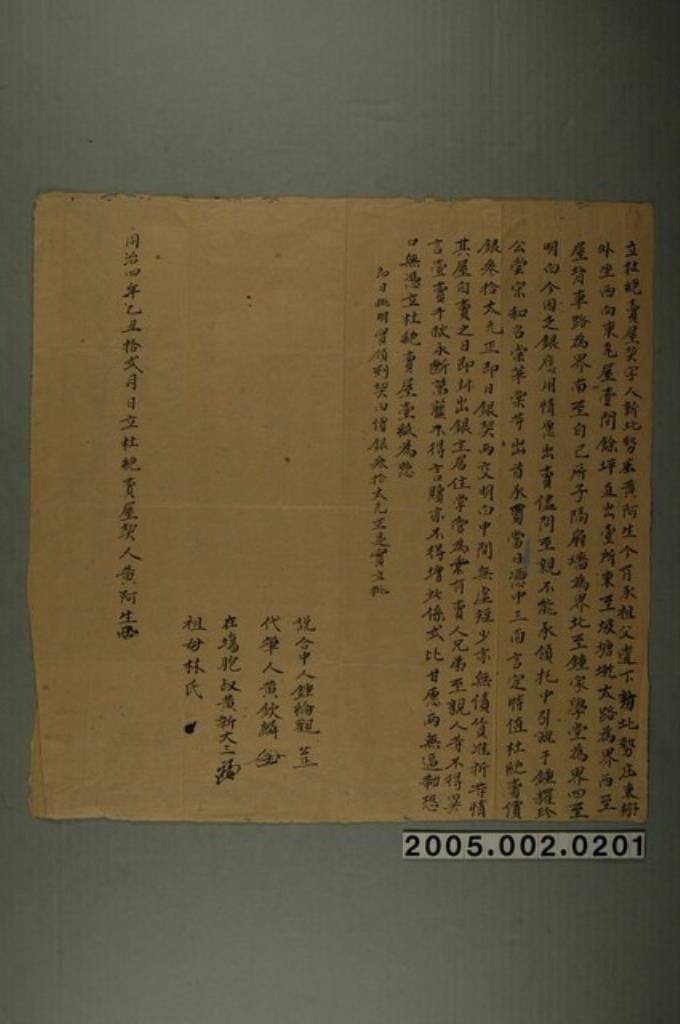 立杜絕賣屋契字人新北勢庄黃阿生今有承祖父遺下新北勢庄東柵
外坐西向東瓦屋壹間餘坪直出壹所東至坡塘墘大路為界西至
屋背車路為界南至自己所予隔扇墻為界北至鍾家學堂為界四至
明白今因乏銀應用情愿出賣儘問至親不能承領托中引就于鍾耀玲
公嘗宗和呂棠華棠等出首承買當日憑中三面言定時值杜絕賣價
銀叁拾大元正即日銀契兩交明白中間無虛短少亦無債貨准折等情
其屋自賣之日即封出銀主居住掌管為業有賣人兄弟至親人等不得異
言壹賣千秋永斷葛藤不得言贖亦不得增此係式比甘愿兩無逼勒恐
口無憑立杜絕賣屋壹紙為憑
即日批明實領到契內價銀叁拾大元正是實立批
說合中人鍾綸觀
代筆人黃欽麟
在塲胞叔黃新大三
祖母林氏
同治四年乙丑拾弍月日立杜絕賣屋契人黃阿生
2005.002.0201